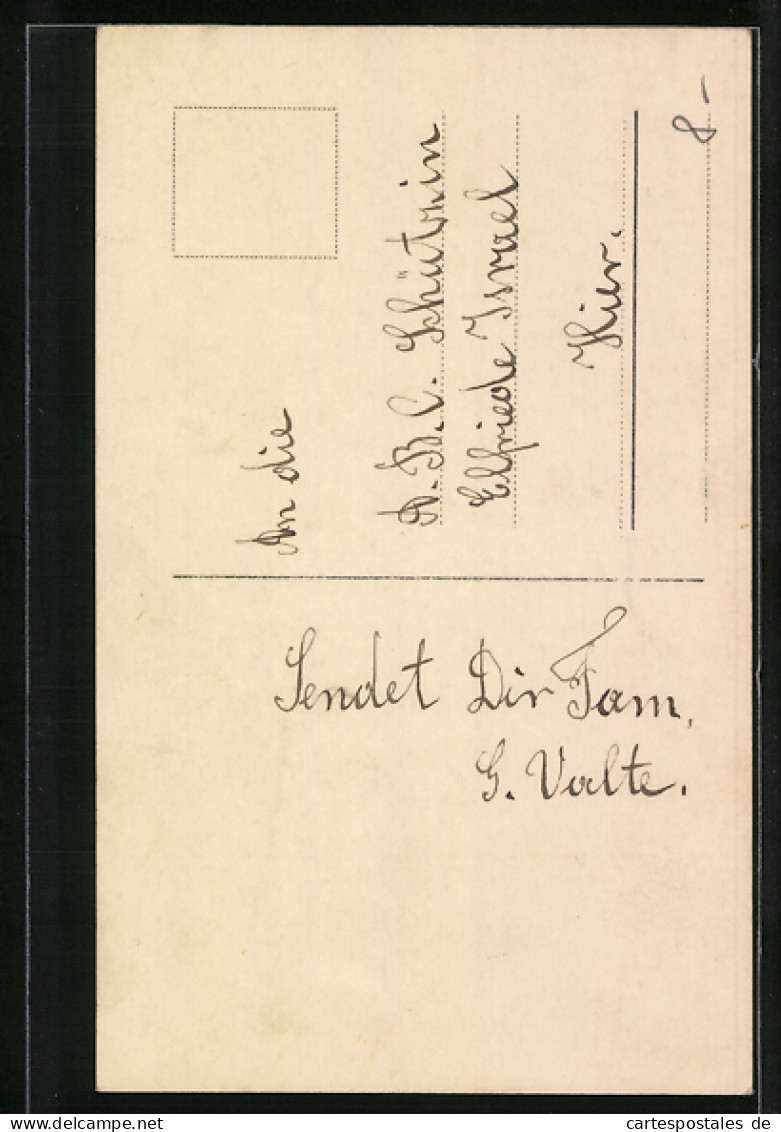 An die
A. B. C. Schützin
Elfriede Israel
Hier.
8 -
Sendet Dir Fam.
G. Valte.
delcampe.net
cartespostales de